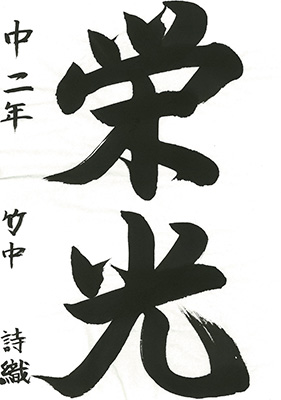 栄光
中二年 竹中 詩織